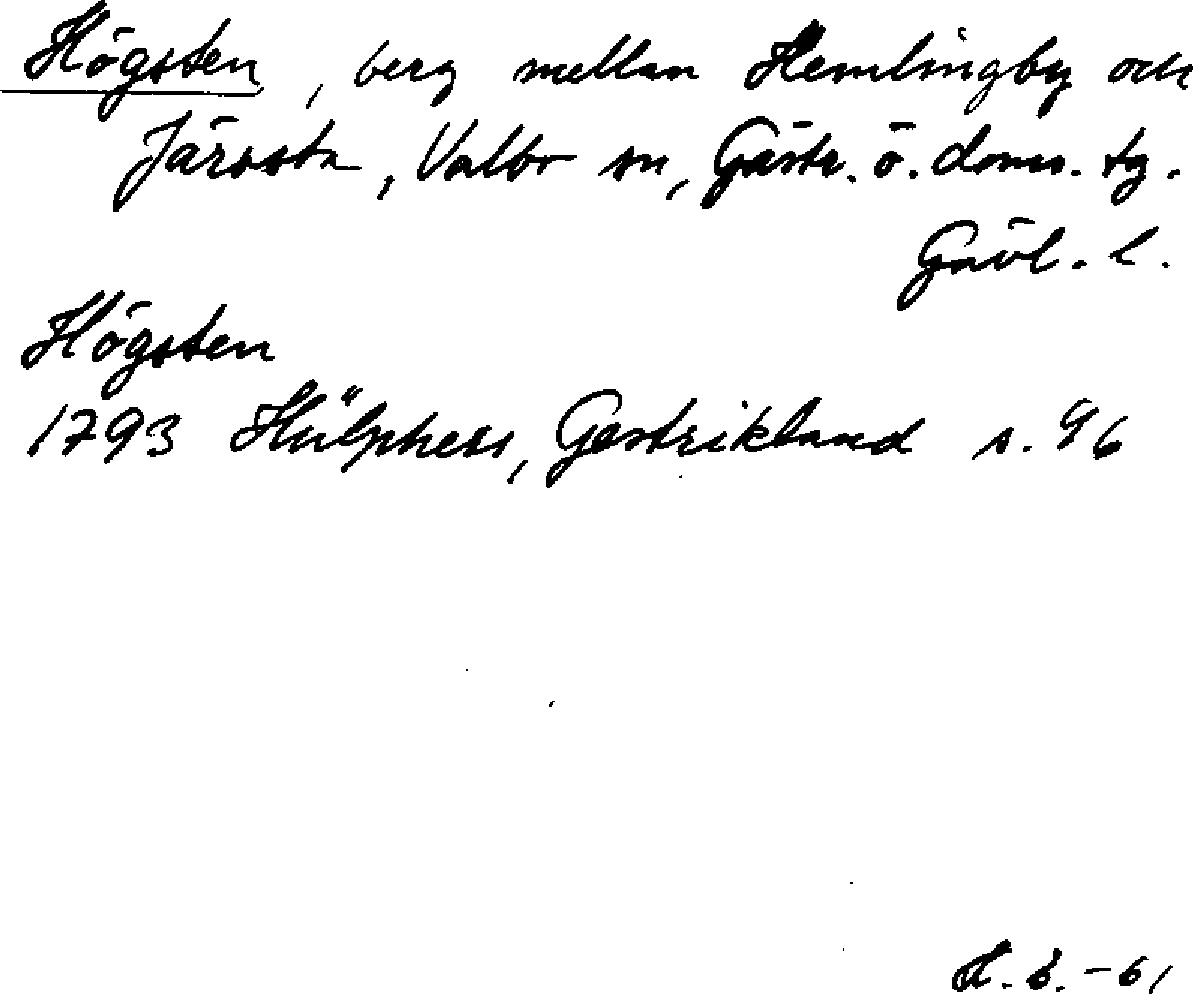 Högsten, berg mellan Hemlingby och
Järvsta, Valbo sn, Gästr. ö. doms. tg.
Gävl. l.
Högsten
1793 Hülphers, Gestrikland s. 96
H. S. -61